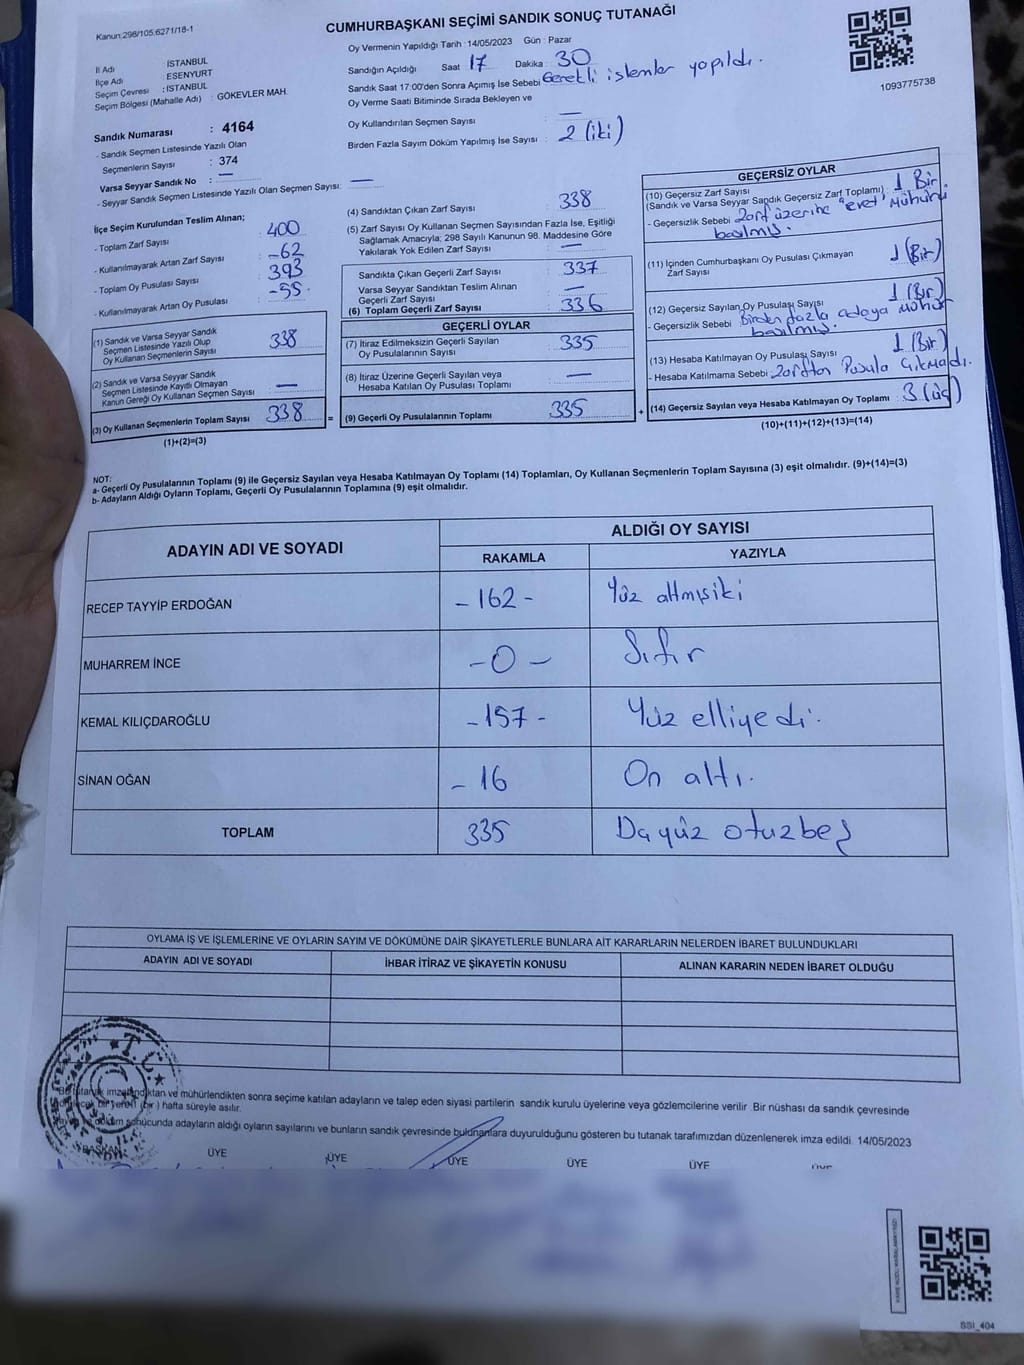 Kanun:298/105.6271/18-1
CUMHURBAŞKANI SEÇİMİ SANDIK SONUÇ TUTANAĞI
İl Adı : İSTANBUL
İlçe Adı : ESENYURT
Seçim Çevresi : İSTANBUL
Seçim Bölgesi (Mahalle Adı) : GÖKEVLER MAH.
Sandık Numarası : 4164
- Sandık Seçmen Listesinde Yazılı Olan
Seçmenlerin Sayısı : 374
Varsa Seyyar Sandık No : —
- Seyyar Sandık Seçmen Listesinde Yazılı Olan Seçmen Sayısı: —
Oy Vermenin Yapıldığı Tarih : 14/05/2023 Gün : Pazar
Sandığın Açıldığı Saat 17 Dakika : 30
Sandık Saat 17:00'den Sonra Açımış İse Sebebi Gerekli işlemler yapıldı.
Oy Verme Saati Bitiminde Sırada Bekleyen ve
Oy Kullandırılan Seçmen Sayısı : —
Birden Fazla Sayım Döküm Yapılmış İse Sayısı : 2 (iki)
1093775738
İlçe Seçim Kurulundan Teslim Alınan;
- Toplam Zarf Sayısı : 400
- Kullanılmayarak Artan Zarf Sayısı : -62
- Toplam Oy Pusulası Sayısı : 393
- Kullanılmayarak Artan Oy Pusulası : -55
(1) Sandık ve Varsa Seyyar Sandık
Seçmen Listesinde Yazılı Olup
Oy Kullanan Seçmenlerin Sayısı : 338
(2) Sandık ve Varsa Seyyar Sandık
Seçmen Listesinde Kayıtlı Olmayan
Kanun Gereği Oy Kullanan Seçmen Sayısı : —
(3) Oy Kullanan Seçmenlerin Toplam Sayısı : 338
(1)+(2)=(3)
=
(4) Sandıktan Çıkan Zarf Sayısı : 338
(5) Zarf Sayısı Oy Kullanan Seçmen Sayısından Fazla İse, Eşitliği
Sağlamak Amacıyla; 298 Sayılı Kanunun 98. Maddesine Göre
Yakılarak Yok Edilen Zarf Sayısı : —
Sandıkta Çıkan Geçerli Zarf Sayısı : 337
Varsa Seyyar Sandıktan Teslim Alınan
Geçerli Zarf Sayısı : —
(6) Toplam Geçerli Zarf Sayısı : 336
GEÇERLİ OYLAR
(7) İtiraz Edilmeksizin Geçerli Sayılan
Oy Pusulalarının Sayısı : 335
(8) İtiraz Üzerine Geçerli Sayılan veya
Hesaba Katılan Oy Pusulası Toplamı : —
(9) Geçerli Oy Pusulalarının Toplamı : 335
+
GEÇERSİZ OYLAR
(10) Geçersiz Zarf Sayısı
(Sandık ve Varsa Seyyar Sandık Geçersiz Zarf Toplamı) : 1 Bir
- Geçersizlik Sebebi : Zarf üzerine "evet" mühürü
basılmış.
(11) İçinden Cumhurbaşkanı Oy Pusulası Çıkmayan
Zarf Sayısı : 1 (Bir)
(12) Geçersiz Sayılan Oy Pusulası Sayısı : 1 (Bir)
- Geçersizlik Sebebi : Birden fazla adaya mühür
basılmış.
(13) Hesaba Katılmayan Oy Pusulası Sayısı : 1 (Bir)
- Hesaba Katılmama Sebebi : Zarftan Pusula Çıkmadı.
(14) Geçersiz Sayılan veya Hesaba Katılmayan Oy Toplamı : 3 (üç)
(10)+(11)+(12)+(13)=(14)
NOT:
a- Geçerli Oy Pusulalarının Toplamı (9) ile Geçersiz Sayılan veya Hesaba Katılmayan Oy Toplamı (14) Toplamları, Oy Kullanan Seçmenlerin Toplam Sayısına (3) eşit olmalıdır. (9)+(14)=(3)
b- Adayların Aldığı Oyların Toplamı, Geçerli Oy Pusulalarının Toplamına (9) eşit olmalıdır.
ADAYIN ADI VE SOYADI
ALDIĞI OY SAYISI
RAKAMLA YAZIYLA
RECEP TAYYİP ERDOĞAN - 162 - Yüz altmışiki
MUHARREM İNCE - 0 - Sıfır
KEMAL KILIÇDAROĞLU - 157 - Yüz elliyedi.
SİNAN OĞAN - 16 On altı.
TOPLAM 335 Üç yüz otuzbeş
OYLAMA İŞ VE İŞLEMLERİNE VE OYLARIN SAYIM VE DÖKÜMÜNE DAİR ŞİKAYETLERLE BUNLARA AİT KARARLARIN NELERDEN İBARET BULUNDUKLARI
ADAYIN ADI VE SOYADI İHBAR İTİRAZ VE ŞİKAYETİN KONUSU ALINAN KARARIN NEDEN İBARET OLDUĞU
T.C.
Bu tutanak imzalandıktan ve mühürlendikten sonra seçime katılan adayların ve talep eden siyasi partilerin sandık kurulu üyelerine veya gözlemcilerine verilir .Bir nüshası da sandık çevresinde
yeni (bir ) hafta süreyle asılır.
ve döküm sonucunda adayların aldığı oyların sayılarını ve bunların sandık çevresinde bulunanlara duyurulduğunu gösteren bu tutanak tarafımızdan düzenlenerek imza edildi. 14/05/2023
BAŞKAN ÜYE ÜYE ÜYE ÜYE ÜYE ÜYE
SSI_404